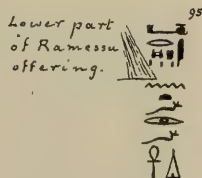 95
Lower part
of Ramessu
offering.
𓈖
𓆑
𓁹
𓆑
𓋹𓏙